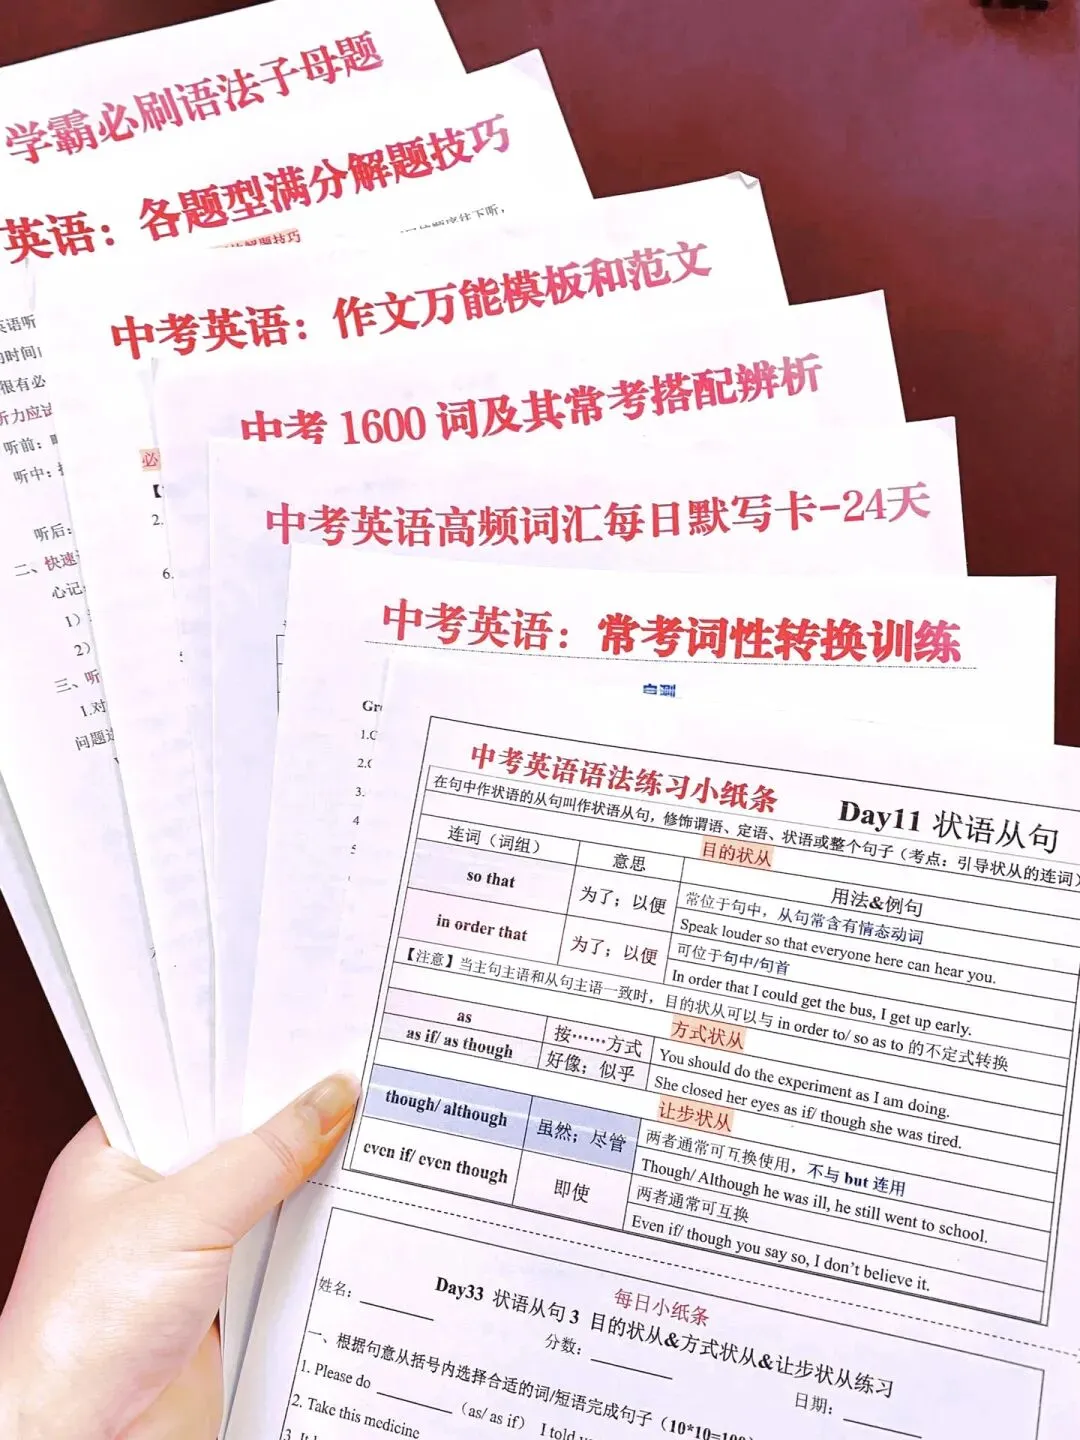 学霸必刷语法子母题
英语：各题型满分解题技巧
解题技巧
往下听，
英语听
的时间
很有必
听力应试
听前：
听中：
听后：
二、快速
心记
1）
2）
三、听
1.对
问题
中考英语：作文万能模板和范文
必
【
2.
6.
中考 1600 词及其常考搭配辨析
中考英语高频词汇每日默写卡-24天
中考英语：常考词性转换训练
自测
Gr
1.C
2.
3.
4
中考英语语法练习小纸条 Day11 状语从句
在句中作状语的从句叫作状语从句，修饰谓语、定语、状语或整个句子（考点：引导状从的连词）
目的状从
连词（词组） 意思 用法&例句
so that 为了；以便 常位于句中，从句常含有情态动词
Speak louder so that everyone here can hear you.
in order that 为了；以便 可位于句中/句首
In order that I could get the bus, I get up early.
【注意】当主句主语和从句主语一致时，目的状从可以与 in order to/ so as to 的不定式转换
方式状从
as 按……方式 You should do the experiment as I am doing.
as if/ as though 好像；似乎 She closed her eyes as if/ though she was tired.
让步状从
though/ although 虽然；尽管 两者通常可互换使用，不与 but 连用
Though/ Although he was ill, he still went to school.
even if/ even though 即使 两者通常可互换
Even if/ though you say so, I don't believe it.
每日小纸条
Day33 状语从句 3 目的状从&方式状从&让步状从练习
姓名：	分数：	日期：
一、根据句意从括号内选择合适的词/短语完成句子（10*10=100
1. Please do ________ （as/ as if） I told
2. Take this medicine
3.